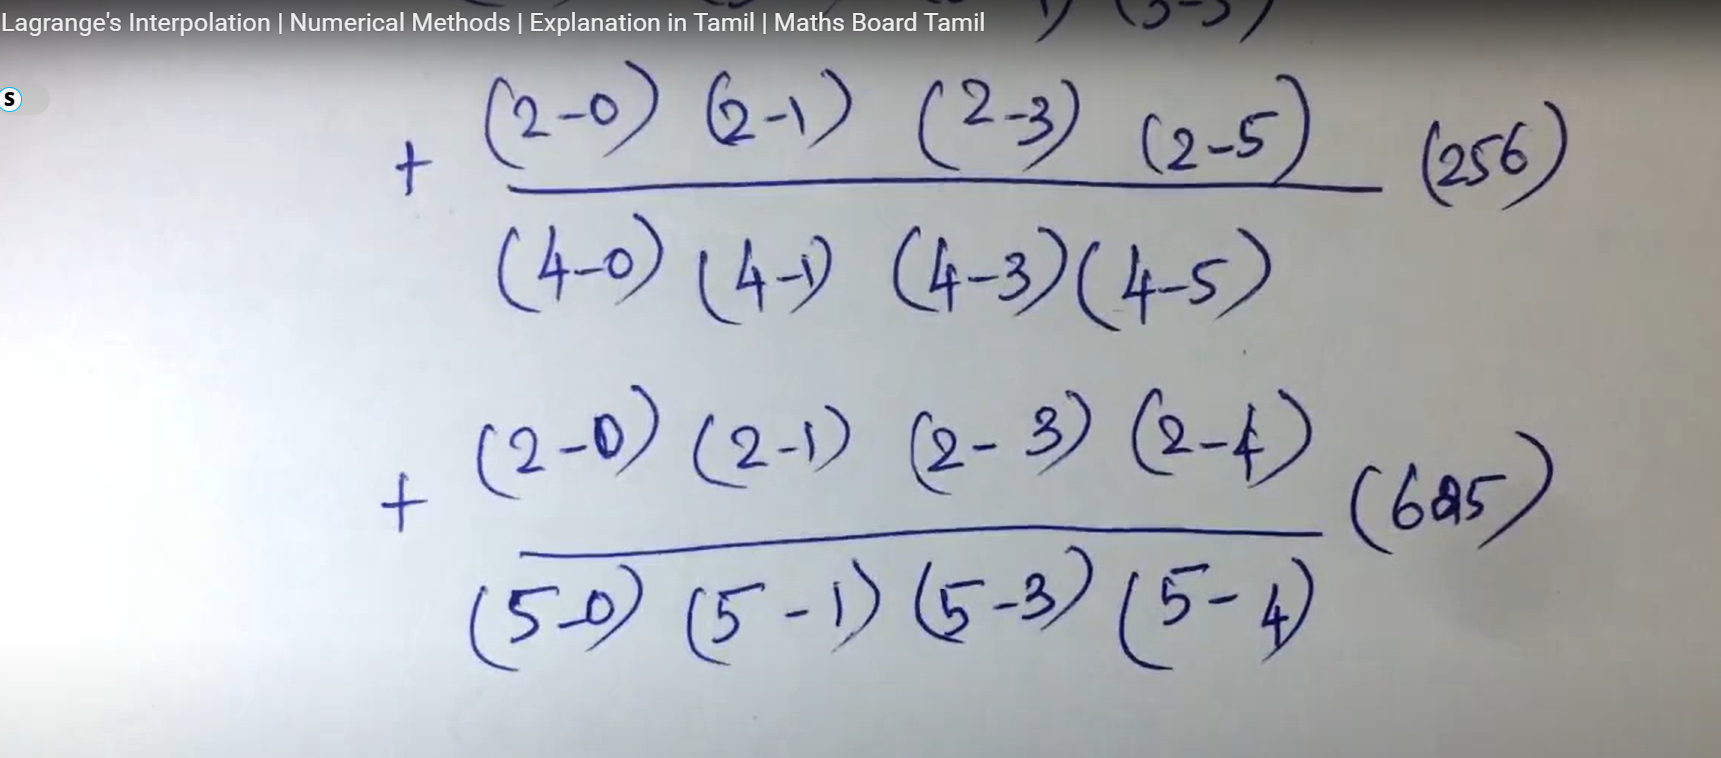 Lagrange's Interpolation | Numerical Methods | Explanation in Tamil | Maths Board Tamil
S
+ (2-0) (2-1) (2-3) (2-5) (256)
(4-0) (4-1) (4-3) (4-5)
+ (2-0) (2-1) (2-3) (2-4) (625)
(5-0) (5-1) (5-3) (5-4)